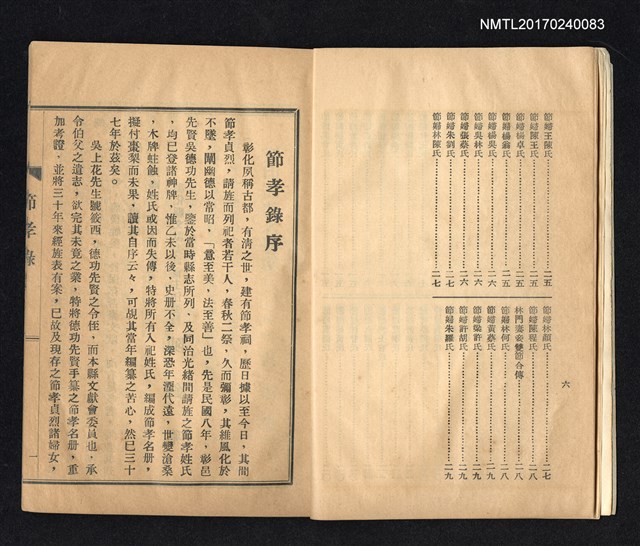 NMTL20170240083
節婦王陳氏……二五
節婦陳王氏……二五
節婦楊卓氏……二五
節婦楊翁氏……二五
節婦楊吳氏……二六
節婦吳林氏……二六
節婦張蔡氏……二六
節婦朱劉氏……二七
節婦林陳氏……二七
節婦林顏氏……二七
節婦陳程氏……二八
林門妻妾雙節合傳……二八
節婦林何氏……二八
節婦黃蔡氏……二九
節婦梁許氏……二九
節婦許胡氏……二九
節婦朱羅氏……二九
六
節孝錄序
彰化夙稱古都，有清之世，建有節孝祠，歷日據以至今日，其間
節孝貞烈，請旌而列祀者若干人，春秋二祭，久而彌彰，其維風化於
不墜，闡幽德以常昭，「意至美，法至善」也，先是民國八年，彰邑
先賢吳德功先生，鑒於當時縣志所列，及同治光緒間請旌之節孝姓氏
，均已登諸神牌，惟乙未以後，史册不全，深恐年湮代遠，世變滄桑
，木牌蛀蝕，姓氏或因而失傳，特將所有入祀姓氏，編成節孝名册，
擬付棗梨而未果，讀其自序云々，可覘其當年編纂之苦心，然已三十
七年於茲矣。
吳上花先生號筱西，德功先賢之令侄，而本縣文獻會委員也，承
令伯父之遺志，欲完其未竟之業，特將德功先賢手纂之節孝名册，重
加考證，並將三十年來經旌表有案，已故及現存之節孝貞烈諸婦女，
節孝錄
一